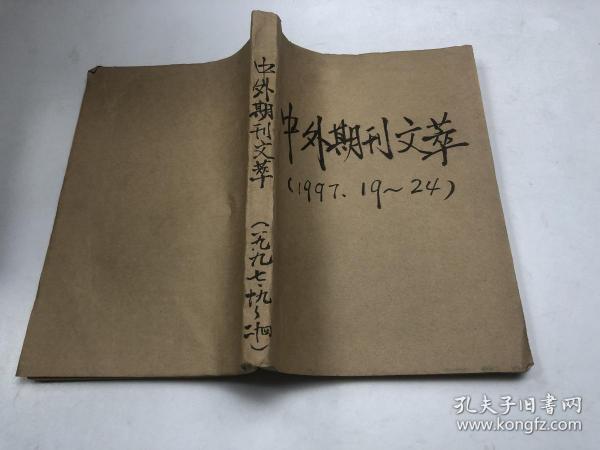 中外期刊文萃
(一九九七·十九~二十四)
中外期刊文萃
(1997.19~24)
孔夫子旧书网
www.kongfz.com